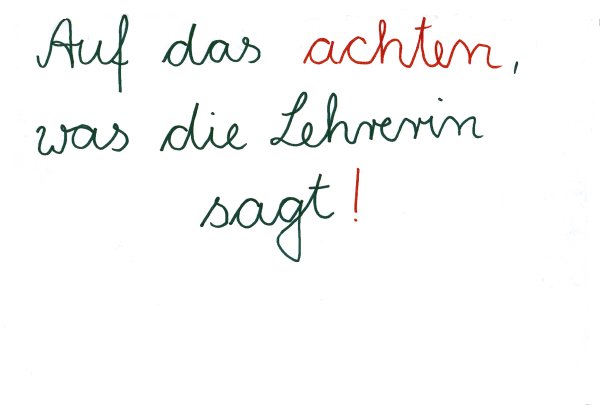 Auf das achten,
was die Lehrerin
sagt!